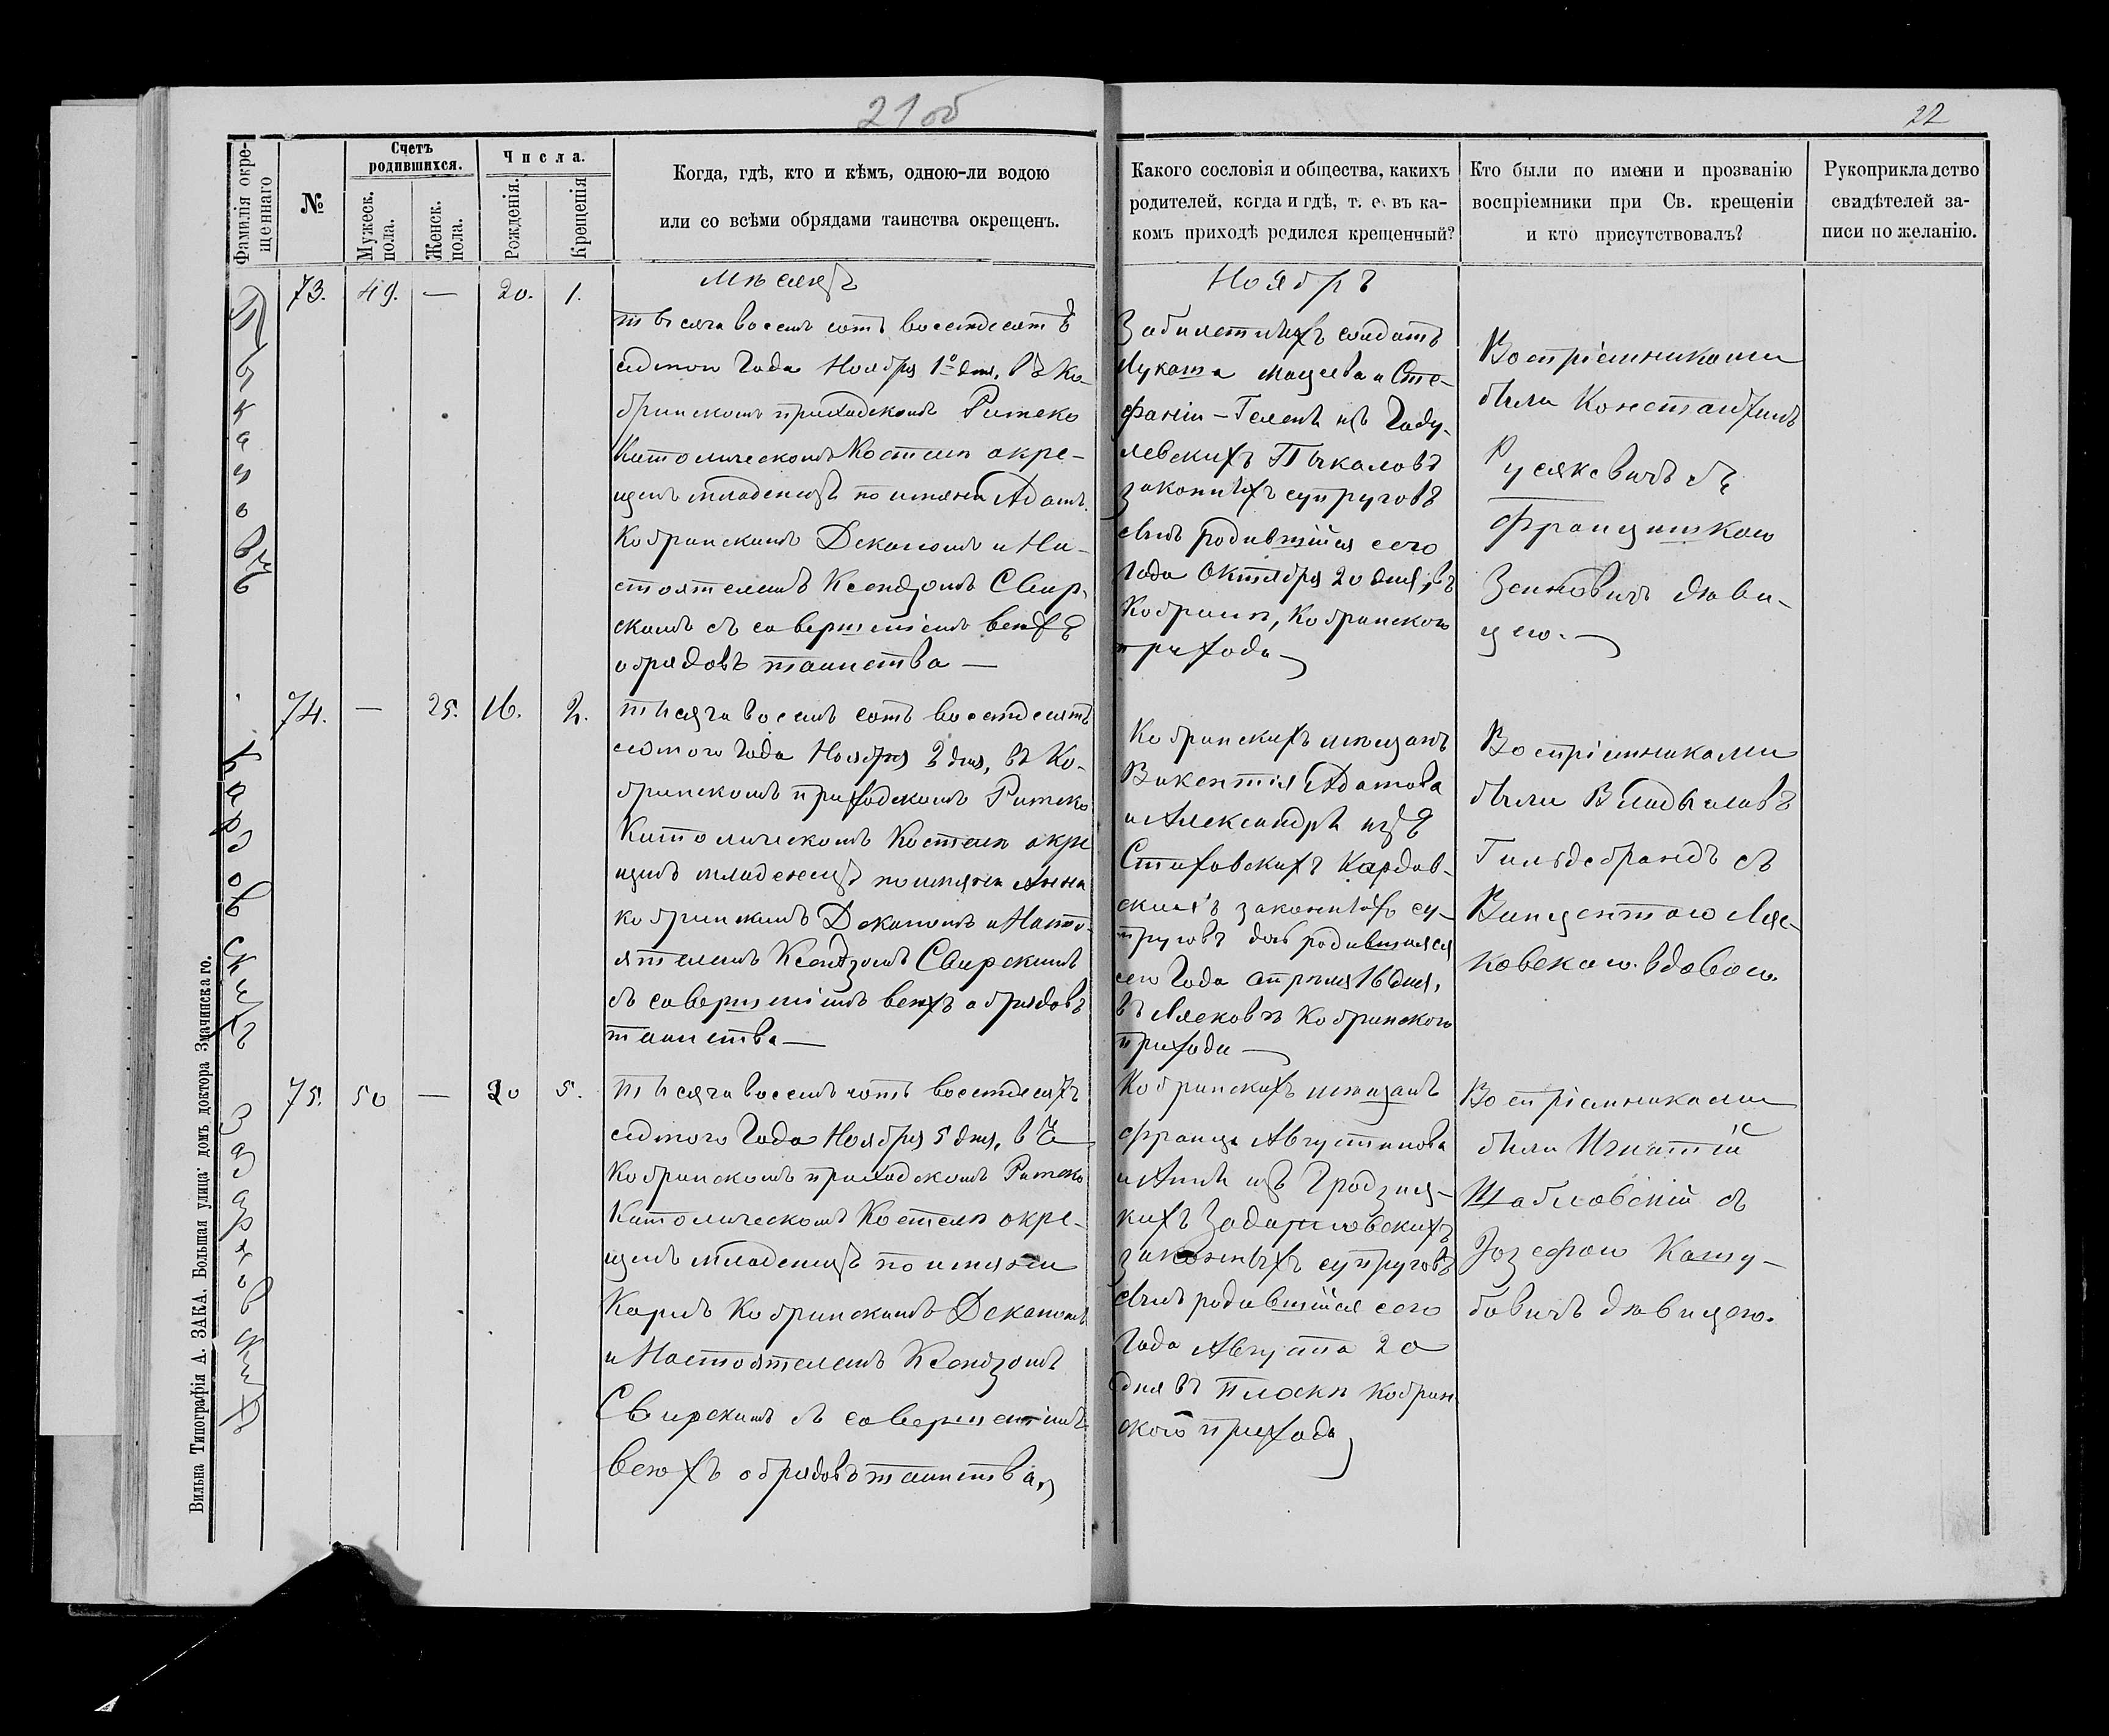 21 об
22
Фамилія окрещеннаго
№
Счетъ родившихся.
Мужеск. пола.
Женск. пола.
Числа.
Рожденія.
Крещенія
Когда, гдѣ, кто и кѣмъ, одною-ли водою
или со всѣми обрядами таинства окрещенъ.
Какого сословія и общества, какихъ
родителей, когда и гдѣ, т. е. въ ка-
комъ приходѣ родился крещенный?
Кто были по имени и прозванію
воспріемники при Св. крещеніи
и кто присутствовалъ?
Рукоприкладство
свидѣтелей за-
писи по желанію.
73. 49. — 20. 1.
Мѣсяцъ
тысяча восемь сотъ восемдесятъ
седмого Года Ноября 1º дня, въ Ко-
бринскомъ приходскомъ Римско
Католическомъ Костелѣ окре-
щенъ младенецъ по имяни Адамъ.
Кобринскимъ Деканомъ и На-
стоятелемъ Ксендзомъ Свир-
скимъ съ совершеніемъ всѣхъ
обрядовъ таинства —
Ноябрь
Забилетныхъ солдатъ
Лукаша Мацеева и Сте-
фаніи-Гелены изъ Гоdу-
левскихъ Пыкаловъ
законныхъ супруговъ
сынъ родившійся сего
Года Октября 20 дня, въ
Кобринѣ, Кобринского
прихода
Воспріемниками
были Константинъ
Русякевичъ съ
Францишкою
Зенковичъ дѣви-
цею. —
74. — 25. 16. 2.
тысяча восемь сотъ восемдесятъ
седмого Года Ноября 2 дня, въ Ко-
бринскомъ приходскомъ Римско
Католическомъ Костелѣ окре
щенъ младенецъ по имяни Анна
Кобринскимъ Деканомъ и Насто-
ятелемъ Ксендзомъ Свирскимъ
съ совершеніемъ всѣхъ обрядовъ
таинства —
Кобринскихъ мѣщанъ
Викентія Адамова
и Александры изъ
Стаховскихъ Кардов-
скихъ законныхъ су-
пруговъ дочь родившаяся
сего Года Апрѣля 16 дня,
въ Лясковѣ Кобринского
прихода —
Воспріемниками
были Владыславъ
Гильдебрандъ съ
Винцентою Ляс-
ковскою вдовою.
75. 50 — 20 5.
тысяча восемь сотъ восемдесятъ
седмого Года Ноября 5 дня, въ
Кобринскомъ приходскомъ Римско
Католическомъ Костелѣ окре-
щенъ младенецъ по имяни
Карлъ Кобринскимъ Деканомъ
и Настоятелемъ Ксендзомъ
Свирскимъ съ совершеніемъ
всѣхъ обрядовъ таинства.
Кобринскихъ мѣщанъ
Франца Августинова
и Анны изъ Гродзиц-
кихъ
законныхъ супруговъ
сынъ родившійся сего
Года Августа 20
дня въ Плоскѣ Кобрин
ского прихода
Воспріемниками
были Игнатій
Шабловскій съ
Іозефою Кашу-
бовичъ дѣвицею.
Вильна Типографія А. ЗАКА. Большая улица домъ доктора Змачинскаго.